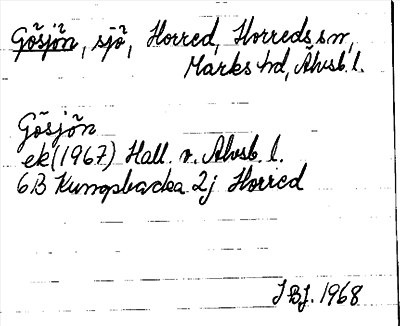 Gõsjõn, sjö, Horred, Horreds sn,
Marks hd, Älvsb. l.
Gõsjõn
ek (1967) Hall. v. Älvsb. l.
6B Kungsbacka 2j Horred
IBJ. 1968